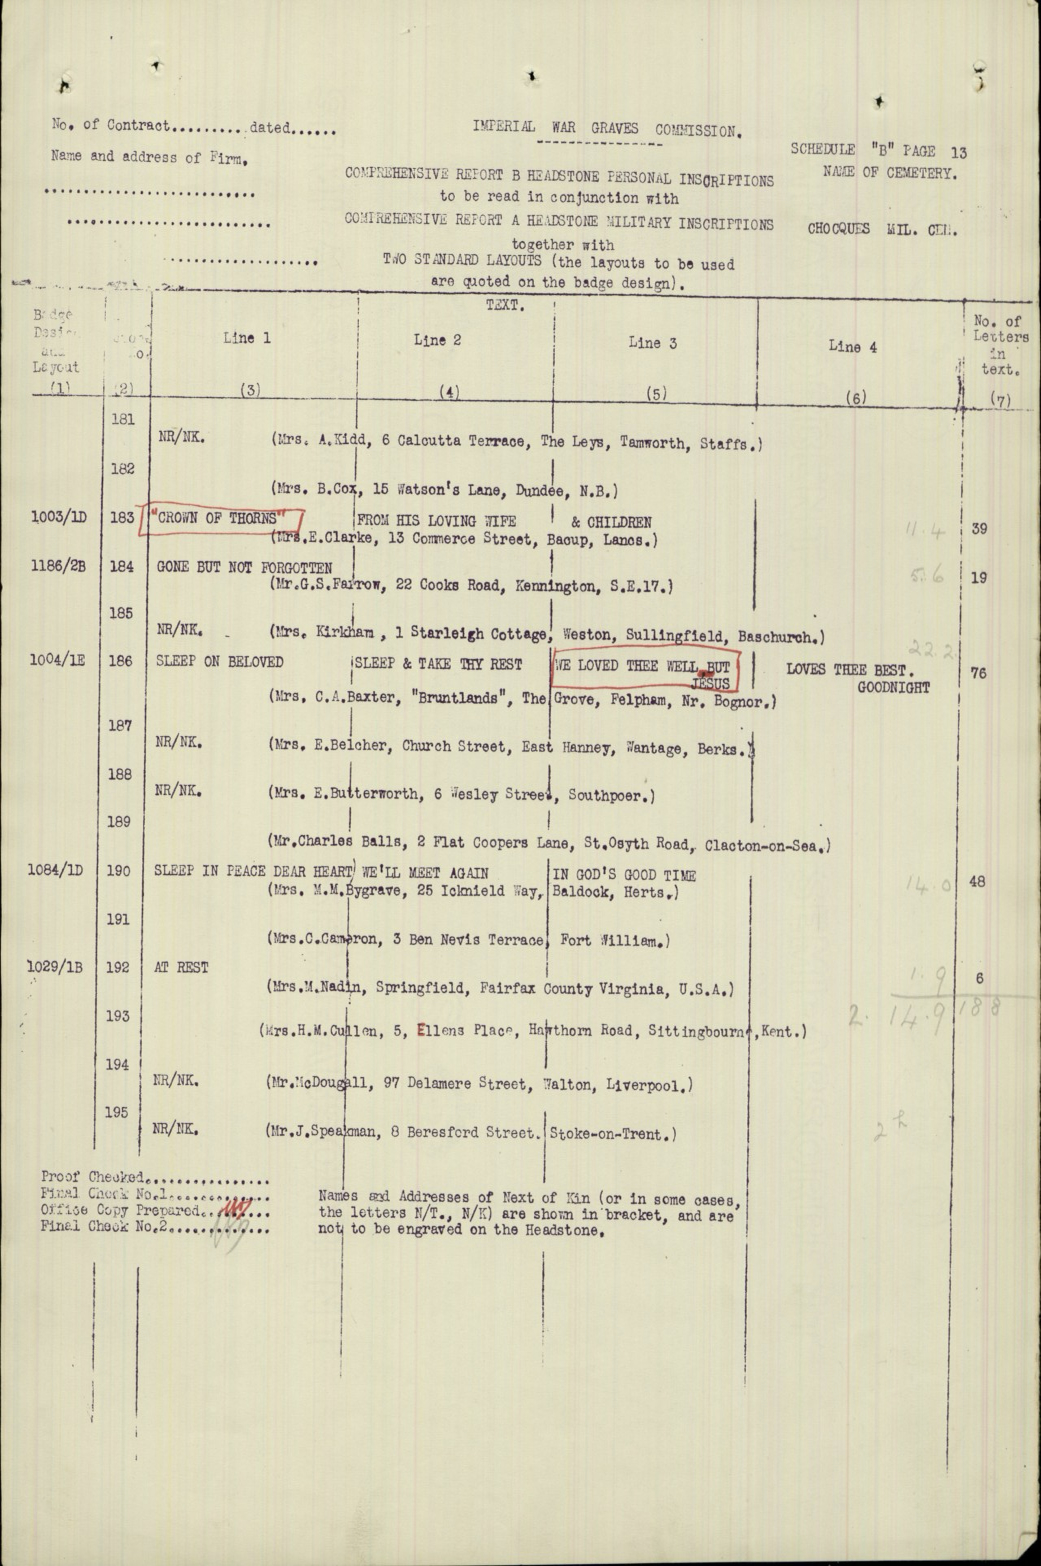 No. of Contract..........dated......
IMPERIAL WAR GRAVES COMMISSION.
SCHEDULE "B" PAGE 13
Name and address of Firm.
NAME OF CEMETERY.
COMPREHENSIVE REPORT B HEADSTONE PERSONAL INSCRIPTIONS
to be read in conjunction with
COMPREHENSIVE REPORT A HEADSTONE MILITARY INSCRIPTIONS
CHOCQUES MIL. CEM.
together with
TWO STANDARD LAYOUTS (the layouts to be used
are quoted on the badge design).
TEXT.
Badge Design and Layout (1)
(2)
Line 1 (3)
Line 2 (4)
Line 3 (5)
Line 4 (6)
No. of Letters in text. (7)
181
NR/NK. (Mrs. A.Kidd, 6 Calcutta Terrace, The Leys, Tamworth, Staffs.)
182
(Mrs. B.Cox, 15 Watson's Lane, Dundee, N.B.)
1003/1D 183 "CROWN OF THORNS" FROM HIS LOVING WIFE & CHILDREN 11.4 39
(Mrs.E.Clarke, 13 Commerce Street, Bacup, Lancs.)
1186/2B 184 GONE BUT NOT FORGOTTEN 5.6 19
(Mr.G.S.Farrow, 22 Cooks Road, Kennington, S.E.17.)
185
NR/NK. (Mrs. Kirkham , 1 Starleigh Cottage, Weston, Sullingfield, Baschurch.)
22.2
1004/1E 186 SLEEP ON BELOVED SLEEP & TAKE THY REST WE LOVED THEE WELL BUT LOVES THEE BEST. 76
JESUS GOODNIGHT
(Mrs. C.A.Baxter, "Bruntlands", The Grove, Felpham, Nr. Bognor.)
187
NR/NK. (Mrs. E.Belcher, Church Street, East Hanney, Wantage, Berks.)
188
NR/NK. (Mrs. E.Butterworth, 6 Wesley Street, Southpoer.)
189
(Mr.Charles Balls, 2 Flat Coopers Lane, St.Osyth Road, Clacton-on-Sea.)
1084/1D 190 SLEEP IN PEACE DEAR HEART WE'LL MEET AGAIN IN GOD'S GOOD TIME 14.0 48
(Mrs. M.M.Bygrave, 25 Icknield Way, Baldock, Herts.)
191
(Mrs.C.Cameron, 3 Ben Nevis Terrace, Fort William.)
1029/1B 192 AT REST 1.9 6
(Mrs.M.Nadin, Springfield, Fairfax County Virginia, U.S.A.)
193 2. 14.9 188
(Mrs.H.M.Cullen, 5, Ellens Place, Hawthorn Road, Sittingbourne,Kent.)
194
NR/NK. (Mr.McDougall, 97 Delamere Street, Walton, Liverpool.)
195
NR/NK. (Mr.J.Speakman, 8 Beresford Street. Stoke-on-Trent.)
Proof Checked................
Final Check No.1.............
Office Copy Prepared.........
Final Check No.2.............
Names and Addresses of Next of Kin (or in some cases,
the letters N/T., N/K) are shown in bracket, and are
not to be engraved on the Headstone.